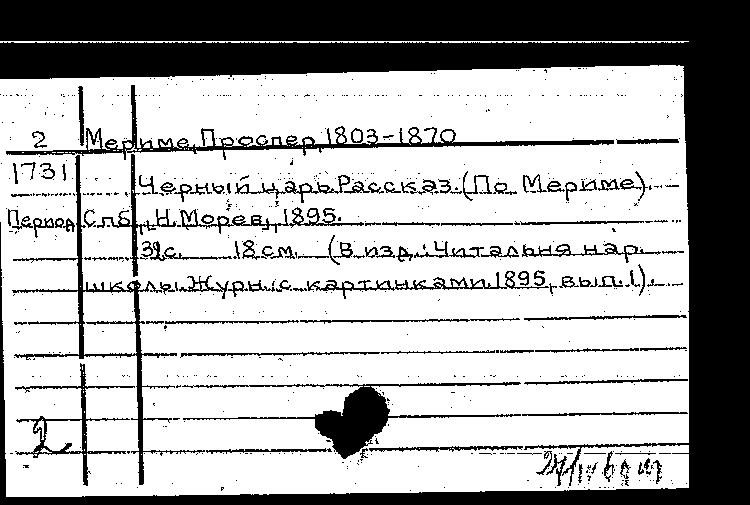 2 Мериме, Проспер, 1803-1870
1731 Черный царь. Рассказ. (По Мериме).
Период. Спб., Н. Морев, 1895.
39с. 18см. (В изд.: Читальня нар.
школы. Журн. с картинками. 1895, вып. 1).
2